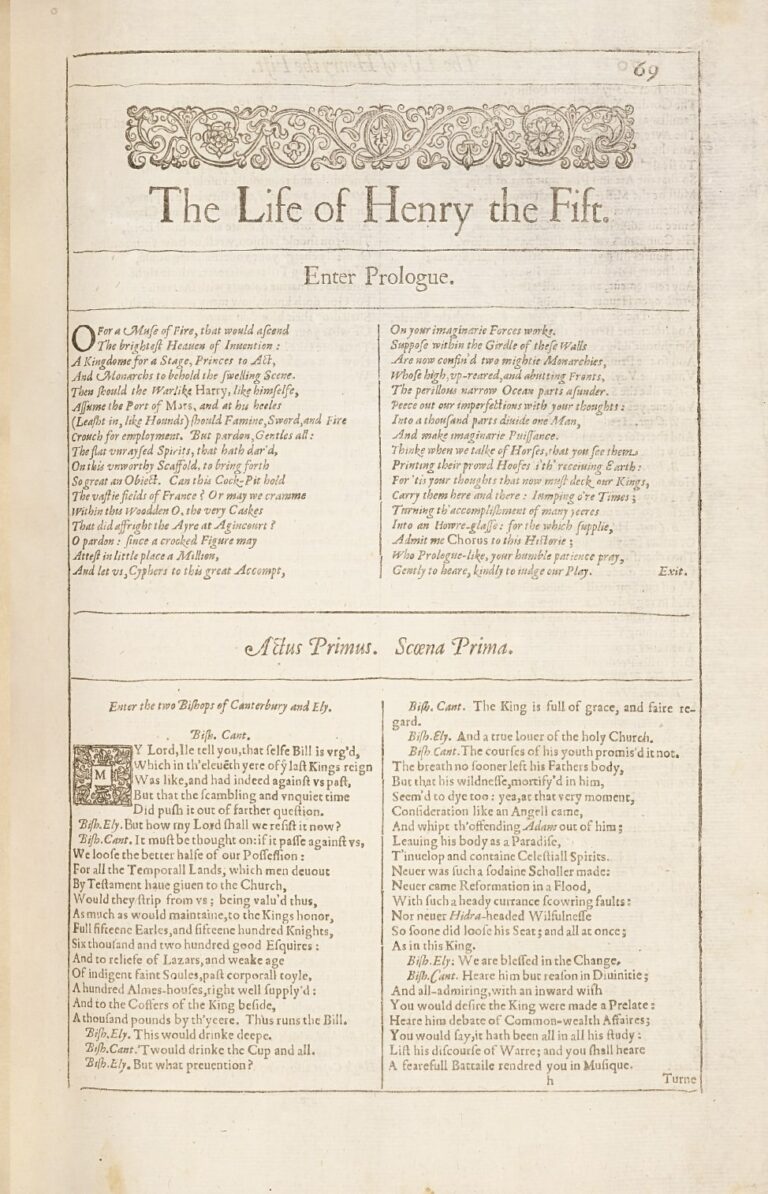 69
The Life of Henry the Fift.
Enter Prologue.
O For a Muse of Fire, that would ascend
The brightest Heauen of Inuention :
A Kingdome for a Stage, Princes to Act,
And Monarchs to behold the swelling Scene.
Then should the Warlike Harry, like himselfe,
Assume the Port of Mars, and at his heeles
(Leasht in, like Hounds) should Famine, Sword, and Fire
Crouch for employment. But pardon, Gentles all :
The flat vnraysed Spirits, that hath dar'd,
On this vnworthy Scaffold, to bring forth
So great an Obiect. Can this Cock-Pit hold
The vastie fields of France ? Or may we cramme
Within this Woodden O, the very Caskes
That did affright the Ayre at Agincourt ?
O pardon : since a crooked Figure may
Attest in little place a Million,
And let vs, Cyphers to this great Accompt,
On your imaginarie Forces worke.
Suppose within the Girdle of these Walls
Are now confin'd two mightie Monarchies,
Whose high, vp-reared, and abutting Fronts,
The perillous narrow Ocean parts asunder.
Peece out our imperfections with your thoughts :
Into a thousand parts diuide one Man,
And make imaginarie Puissance.
Thinke when we talke of Horses, that you see them
Printing their prowd Hoofes i'th' receiuing Earth :
For 'tis your thoughts that now must deck our Kings,
Carry them here and there : Iumping o're Times ;
Turning th'accomplishment of many yeeres
Into an Howre-glasse : for the which supplie,
Admit me Chorus to this Historie ;
Who Prologue-like, your humble patience pray,
Gently to heare, kindly to iudge our Play. Exit.
Actus Primus. Scœna Prima.
Enter the two Bishops of Canterbury and Ely.
Bish. Cant.
MY Lord, Ile tell you, that selfe Bill is vrg'd,
Which in th'eleuēth yere of yͤ last Kings reign
Was like, and had indeed against vs past,
But that the scambling and vnquiet time
Did push it out of farther question.
Bish. Ely. But how my Lord shall we resist it now?
Bish. Cant. It must be thought on: if it passe against vs,
We loose the better halfe of our Possession :
For all the Temporall Lands, which men deuout
By Testament haue giuen to the Church,
Would they strip from vs ; being valu'd thus,
As much as would maintaine, to the Kings honor,
Full fifteene Earles, and fifteene hundred Knights,
Six thousand and two hundred good Esquires :
And to reliefe of Lazars, and weake age
Of indigent faint Soules, past corporall toyle,
A hundred Almes-houses, right well supply'd :
And to the Coffers of the King beside,
A thousand pounds by th'yeere. Thus runs the Bill.
Bish. Ely. This would drinke deepe.
Bish. Cant. 'Twould drinke the Cup and all.
Bish. Ely. But what preuention ?
Bish. Cant. The King is full of grace, and faire re-
gard.
Bish. Ely. And a true louer of the holy Church.
Bish. Cant. The courses of his youth promis'd it not.
The breath no sooner left his Fathers body,
But that his wildnesse, mortify'd in him,
Seem'd to dye too : yea, at that very moment,
Consideration like an Angell came,
And whipt th'offending Adam out of him ;
Leauing his body as a Paradise,
T'inuelop and containe Celestiall Spirits.
Neuer was such a sodaine Scholler made:
Neuer came Reformation in a Flood,
With such a heady currance scowring faults :
Nor neuer Hidra-headed Wilfulnesse
So soone did loose his Seat ; and all at once ;
As in this King.
Bish. Ely. We are blessed in the Change.
Bish. Cant. Heare him but reason in Diuinitie ;
And all-admiring, with an inward wish
You would desire the King were made a Prelate :
Heare him debate of Common-wealth Affaires;
You would say, it hath been all in all his study :
List his discourse of Warre; and you shall heare
A fearefull Battaile rendred you in Musique.
h Turne